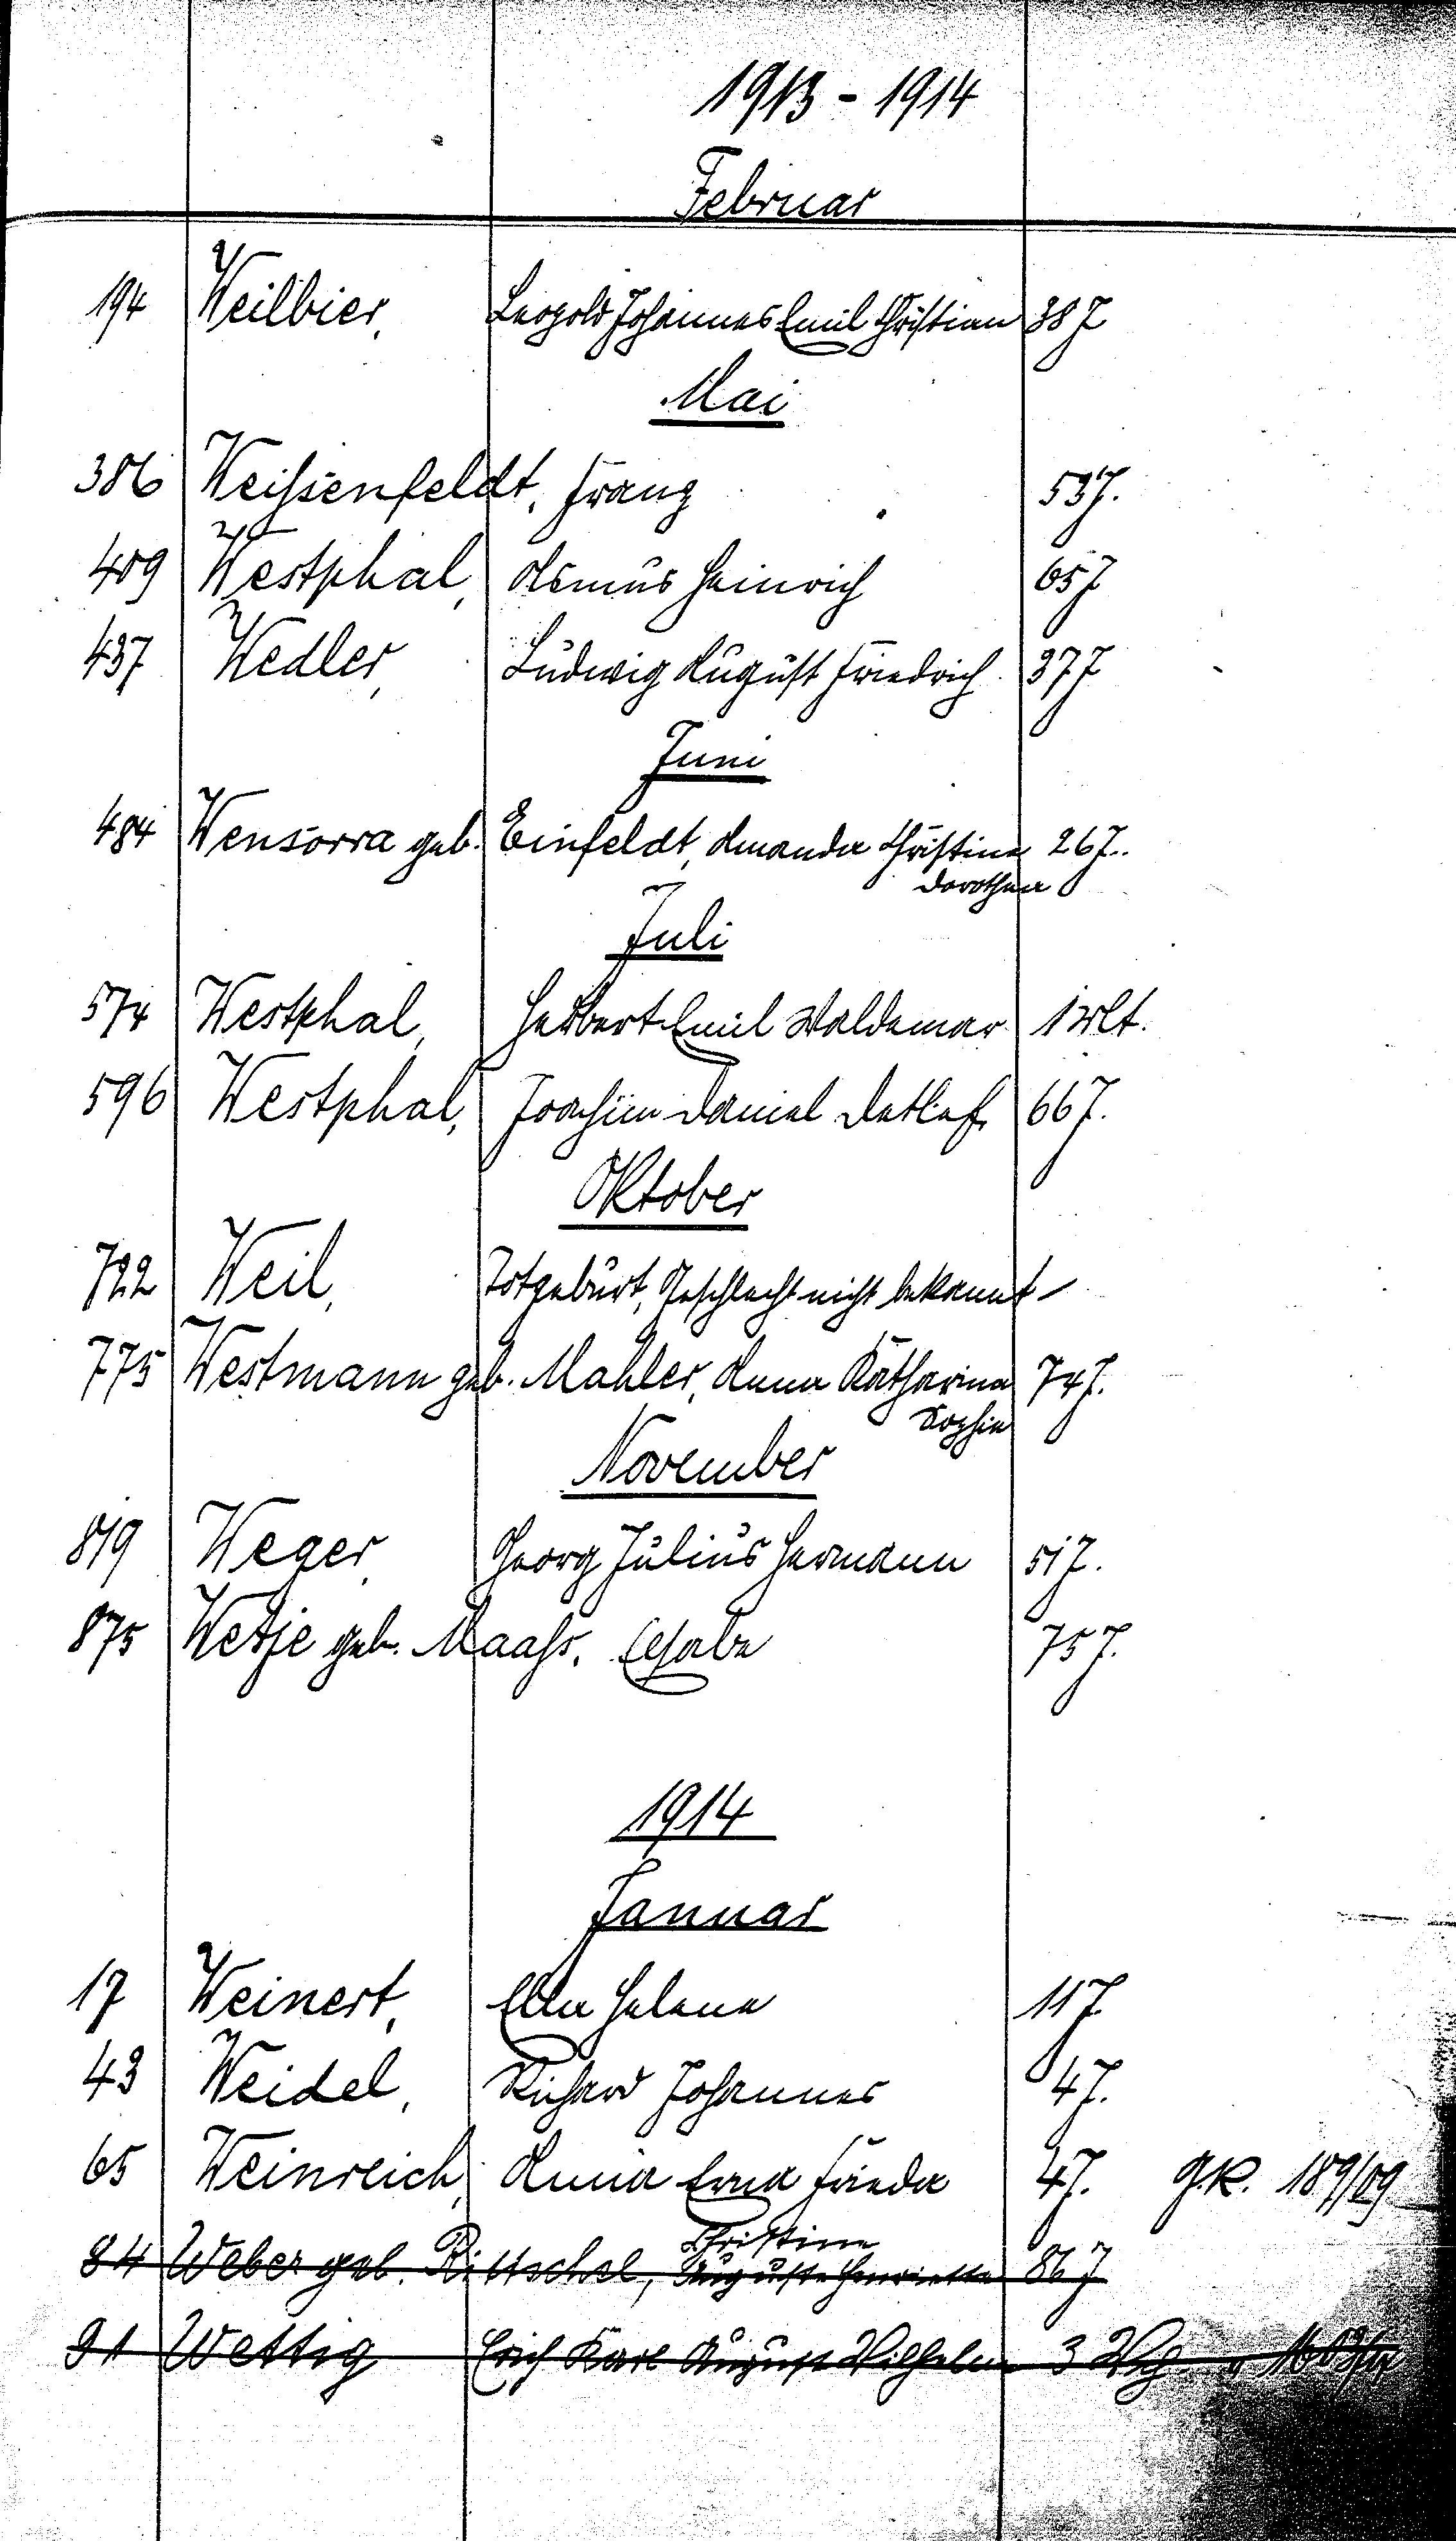 1913 - 1914
Februar
194 Weilbier, Leopold Johannes Emil Christian 38 J
Mai
386 Weißenfeldt, Franz 53 J.
409 Westphal, Asmus Heinrich 65 J
437 Wedler, Ludwig August Friedrich 37 J
Juni
484 Wensorra geb. Einfeldt, Amanda Christine 26 J.
Dorothea
Juli
574 Westphal, Herbert Emil Waldemar 1 Mt.
596 Westphal, Joachim Daniel Detlef 66 J.
Oktober
722 Weil, Totgeburt, Geschlecht nicht bekannt -
775 Westmann geb. Mahler, Anna Katharina 74 J.
Sophie
November
819 Weger, Georg Julius Hermann 51 J.
875 Wetje geb. Maaß, Elsabe 75 J.
1914
Januar
17 Weinert, Ella Helene 11 J
43 Weidel, Richard Johannes 4 J.
65 Weinreich, Anna Erna Frieda 4 J. G.R. 189/09
Christine
84 Weber geb. Rittschel, Auguste Henriette 86 J
91 Wettig Erich Karl August Wilhelm 3